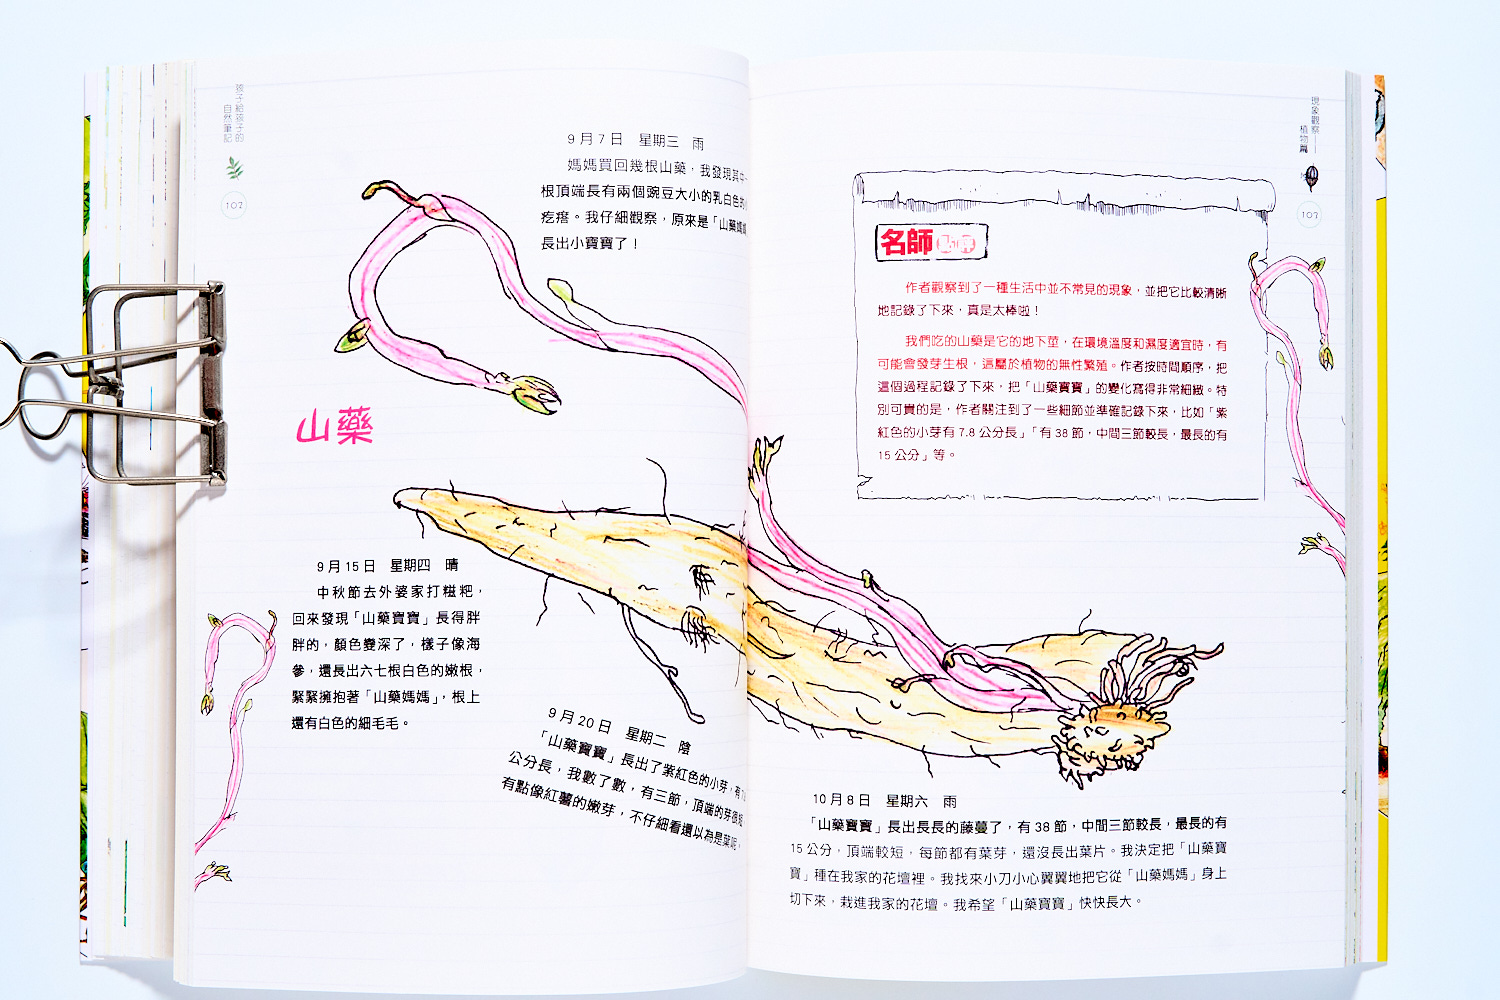 孩子給孩子的
自然筆記
107
9月7日 星期三 雨
媽媽買回幾根山藥，我發現其中一
根頂端長有兩個豌豆大小的乳白色的
疙瘩。我仔細觀察，原來是「山藥媽媽
長出小寶寶了！
山藥
9月15日 星期四 晴
中秋節去外婆家打糍粑，
回來發現「山藥寶寶」長得胖
胖的，顏色變深了，樣子像海
參，還長出六七根白色的嫩根，
緊緊擁抱著「山藥媽媽」，根上
還有白色的細毛毛。
9月20日 星期二 陰
「山藥寶寶」長出了紫紅色的小芽，有
公分長，我數了數，有三節，頂端的芽很
有點像紅薯的嫩芽，不仔細看還以為是葉呢。
現象觀察——
植物篇
107
名師
作者觀察到了一種生活中並不常見的現象，並把它比較清晰
地記錄了下來，真是太棒啦！
我們吃的山藥是它的地下莖，在環境溫度和濕度適宜時，有
可能會發芽生根，這屬於植物的無性繁殖。作者按時間順序，把
這個過程記錄了下來，把「山藥寶寶」的變化寫得非常細緻。特
別可貴的是，作者關注到了一些細節並準確記錄下來，比如「紫
紅色的小芽有7.8公分長」「有38節，中間三節較長，最長的有
15公分」等。
10月8日 星期六 雨
「山藥寶寶」長出長長的藤蔓了，有38節，中間三節較長，最長的有
15公分，頂端較短，每節都有葉芽，還沒長出葉片。我決定把「山藥寶
寶」種在我家的花壇裡。我找來小刀小心翼翼地把它從「山藥媽媽」身上
切下來，栽進我家的花壇。我希望「山藥寶寶」快快長大。